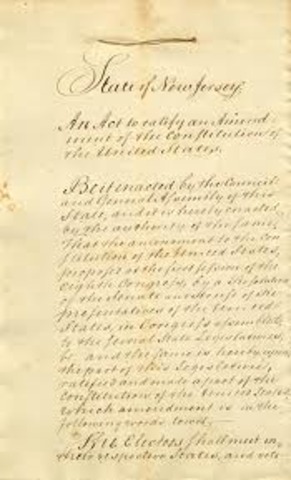 State of New Jersey,
An Act to ratify an Amend
ment of the Constitution of
the United States.
Be it enacted by the Council
and General Assembly of this
State, and it is hereby enacted
by the authority of the same,
That the amendment to the Con
stitution of the United States,
proposed at the first session of the
Eighth Congress, by a Resolution
of the Senate and House of Re
presentatives of the United
States, in Congress assembled
to the several State Legislatures,
be and the same is hereby upon
the part of this Legislature,
ratified and made a part of the
Constitution of the United States,
which amendment is in the
following words, towit.
The Electors shall meet in
their respective States, and vote